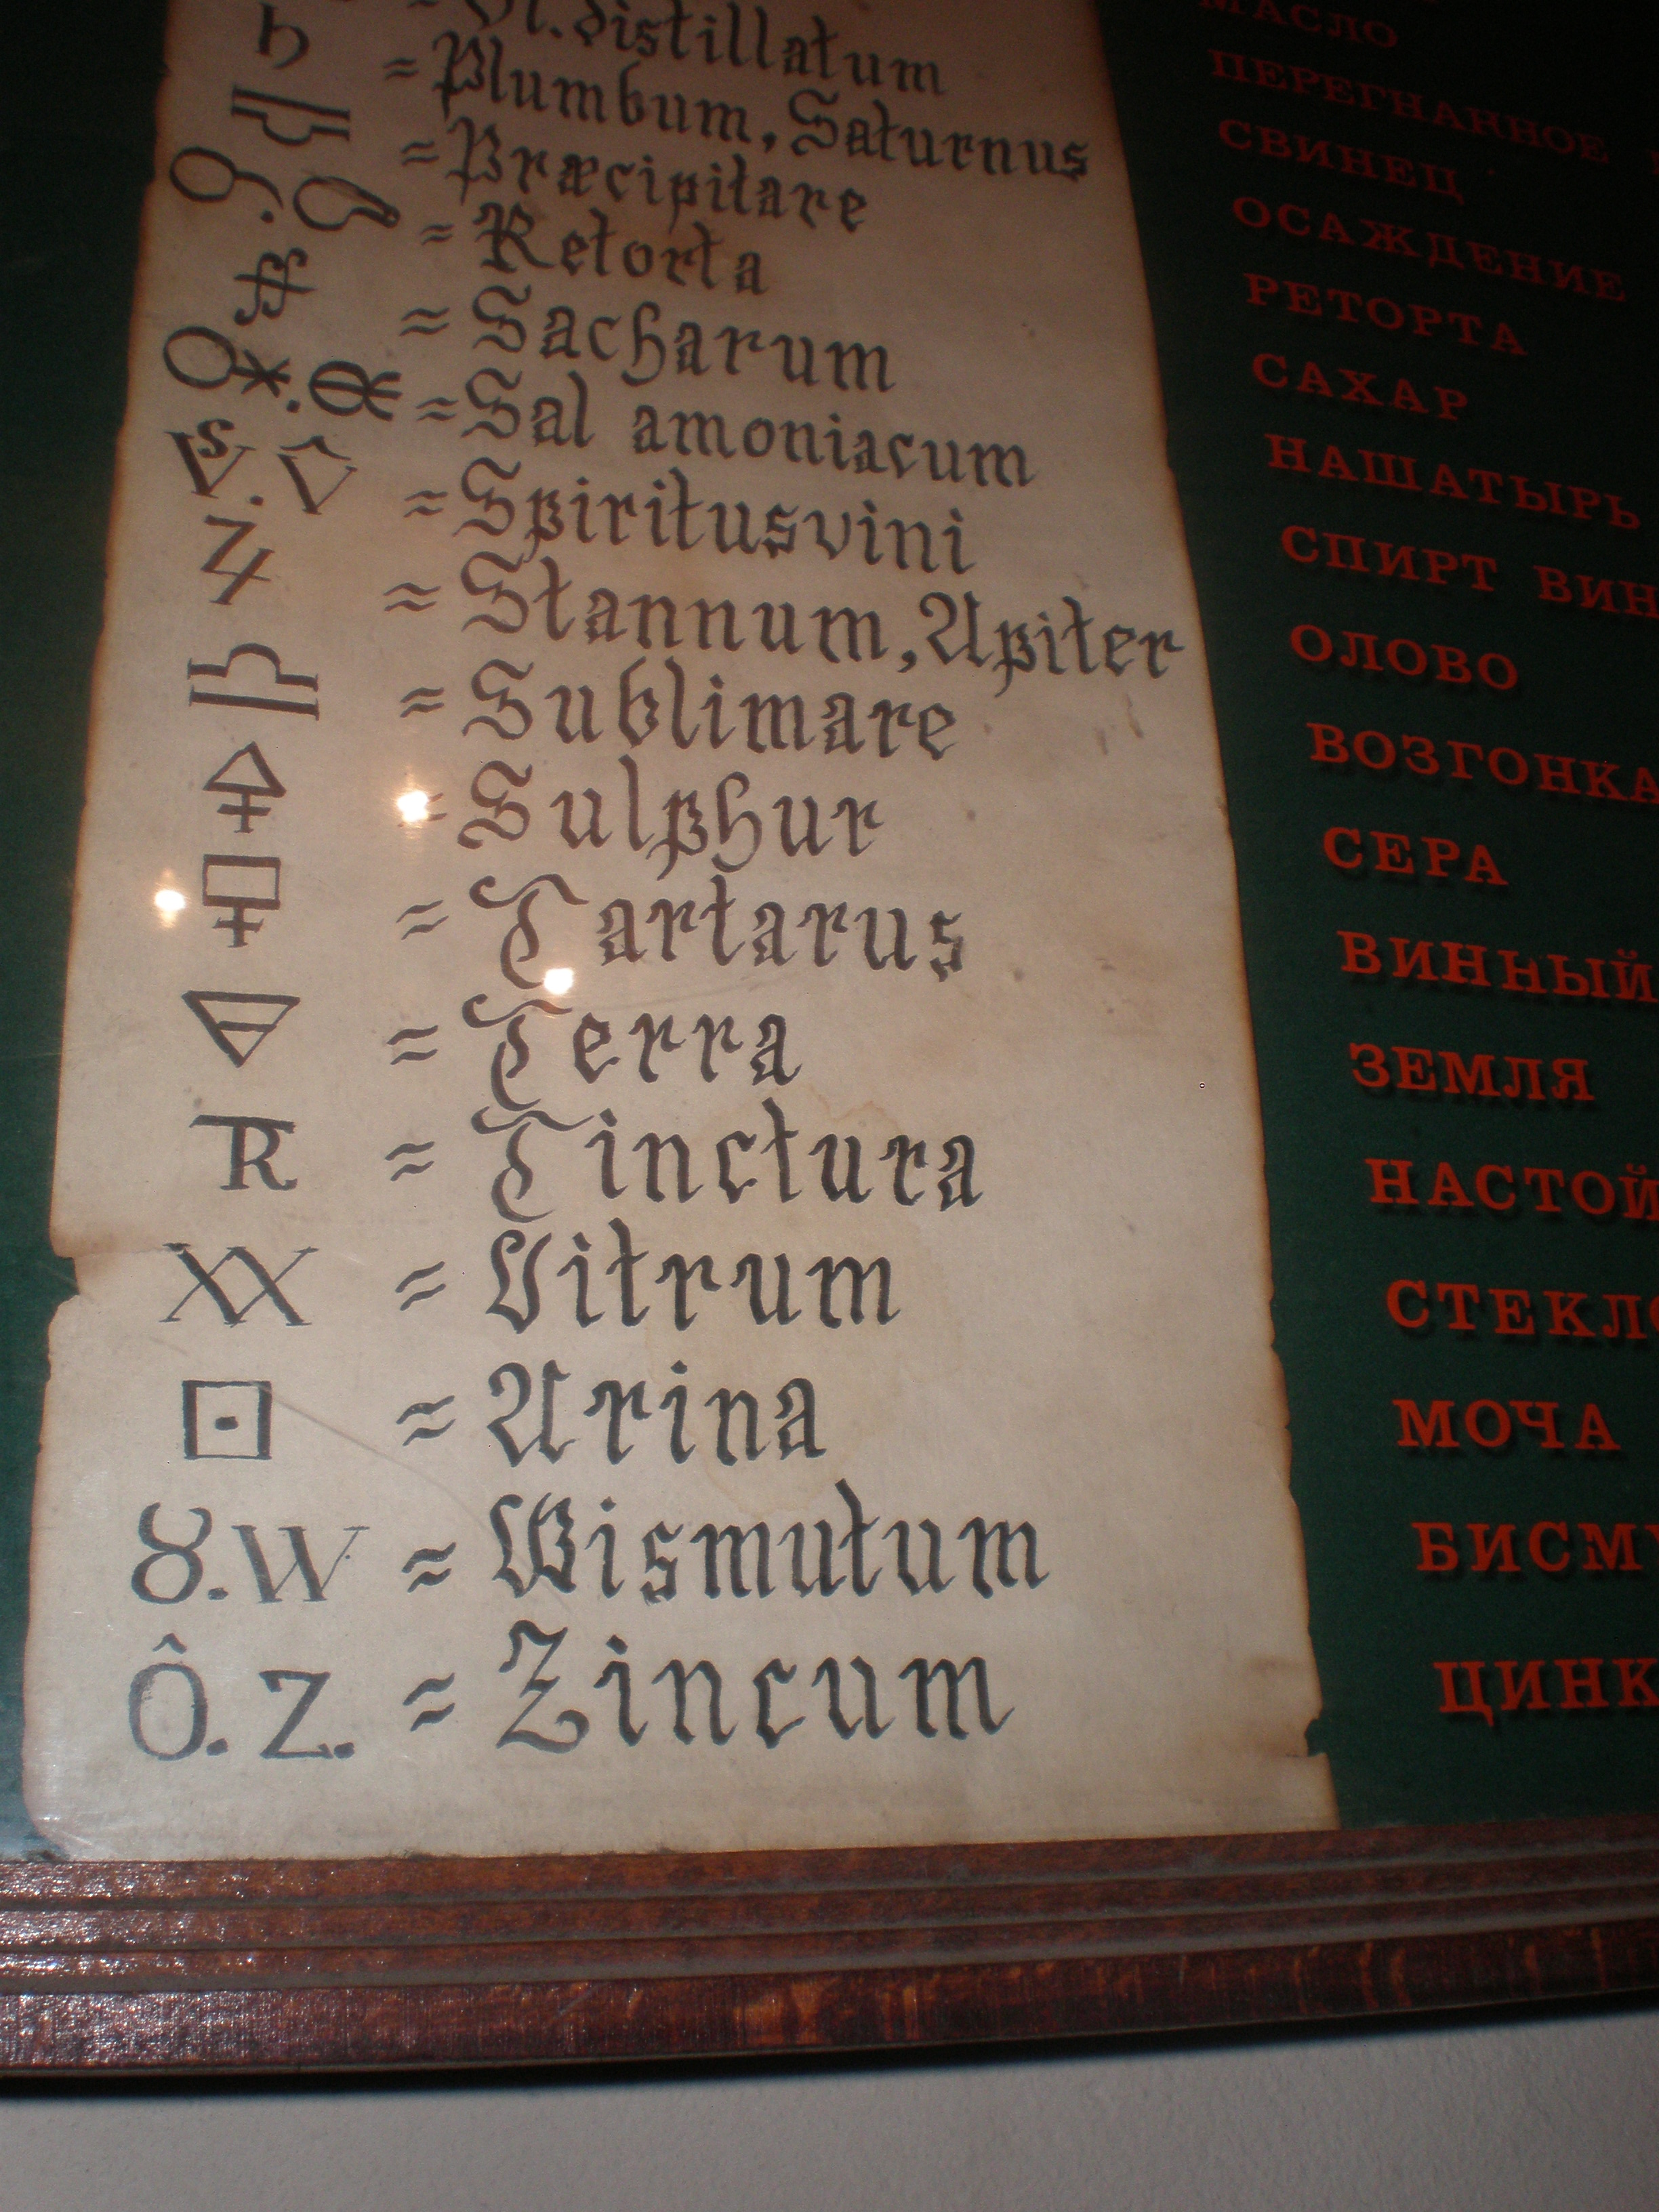 ≈ Ol. distillatum
♄ ≈ Plumbum, Saturnus
≈ Præcipitare
≈ Retorta
≈ Sacharum
≈ Sal amoniacum
≈ Spiritusvini
♃ ≈ Stannum, Upiter
♎ ≈ Sublimare
🜍 ≈ Sulphur
≈ Tartarus
≈ Terra
R ≈ Tinctura
XX ≈ Vitrum
⊡ ≈ Urina
♉. W ≈ Wismutum
Ô. Z. ≈ Zincum
МАСЛО
ПЕРЕГНАННОЕ
СВИНЕЦ
ОСАЖДЕНИЕ
РЕТОРТА
САХАР
НАШАТЫРЬ
СПИРТ ВИН
ОЛОВО
ВОЗГОНКА
СЕРА
ВИННЫЙ
ЗЕМЛЯ
НАСТОЙ
СТЕКЛО
МОЧА
БИСМУ
ЦИНК